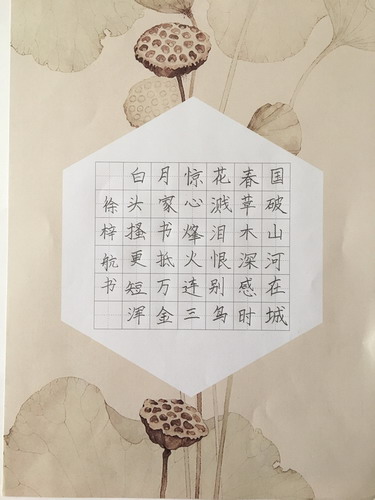 国破山河在城
春草木深感时
花溅泪恨别鸟
惊心烽火连三
月家书抵万金
白头搔更短浑
徐梓航书